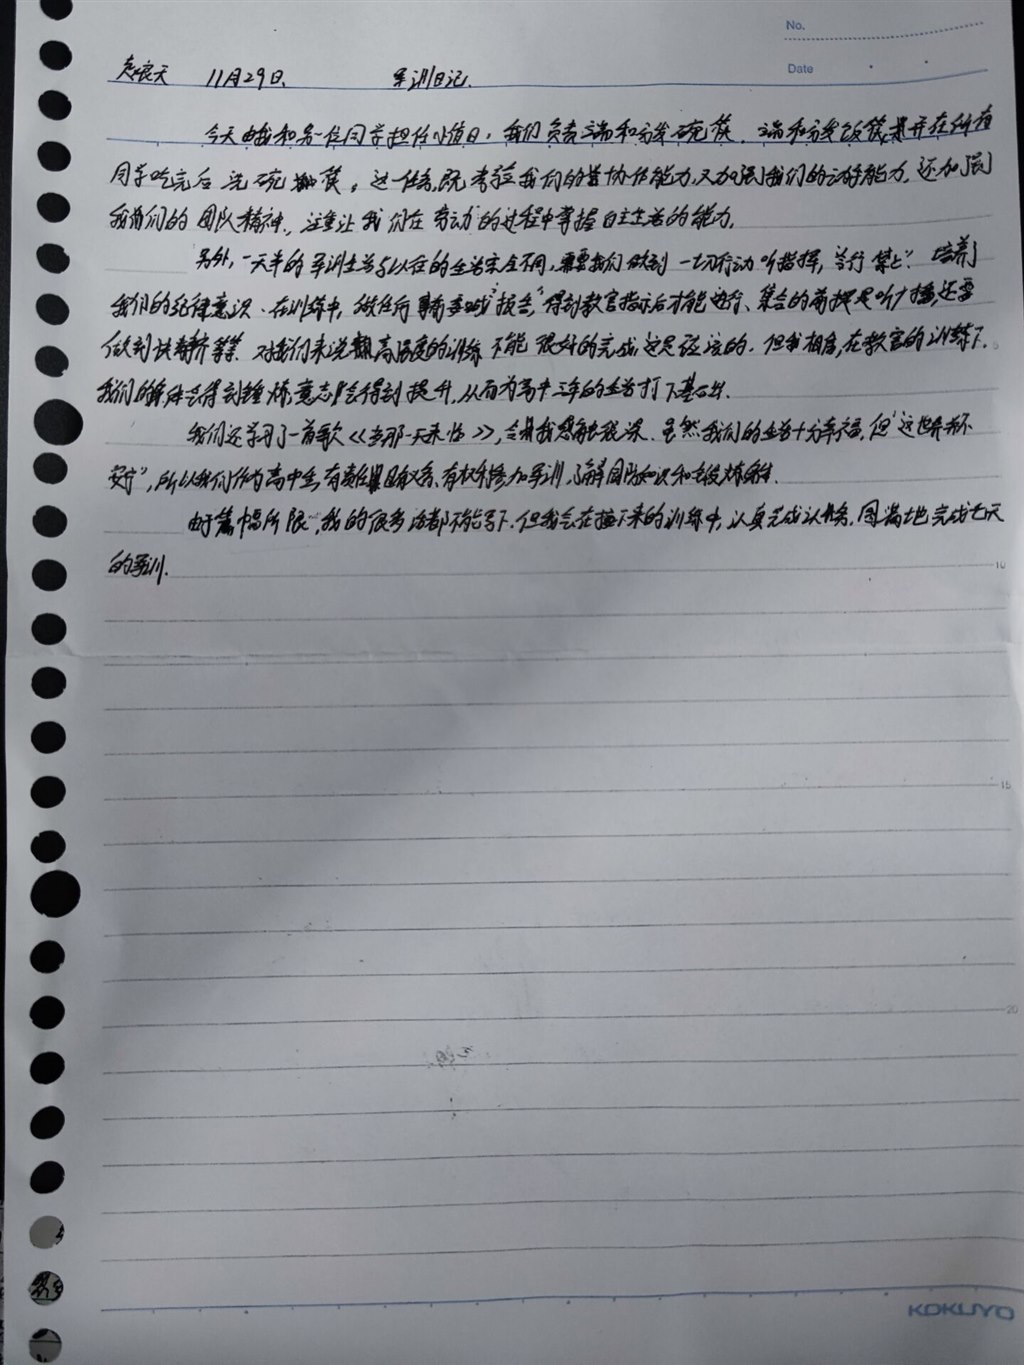 No.
Date
天 11月29日. 军训日记.
今天由我和另一位同学担任小值日. 我们负责端和分发碗筷. 端和分发饭馍,并在所有
同学吃完后 洗碗筷. 这一任务,既考验我们的协作能力,又加强我们的动手能力. 还加强
我们的团队精神. 注重让我们在劳动的过程中掌握自主生活的能力.
另外,一天半的军训生活与以往的生活完全不同,需要我们做到一切行动听指挥, 令行禁止". 培养了
我们的纪律意识. 在训练中, 做任何事前要喊"报告",得到教官指示后才能进行、集合的前提是听广播,还需
做到快静齐等等. 对我们来说高强度的训练 不能很好的完成,这是应该的. 但我相信,在教官的训练下.
我们的身体会得到锤炼,意志会得到提升,从而为高中三年的生活打下基础.
我们还学习了一首歌《当那一天来临》,令我感触很深. 虽然我们的生活十分幸福, 但"这世界并不
安宁",所以我们作为高中生,有责任且有义务、有权利参加军训,了解国防知识和锻炼身体.
由于篇幅所限,我的很多话都不能写下. 但我会在接下来的训练中,认真完成任务. 圆满地完成七天
的军训.
10
15
20
KOKUYO